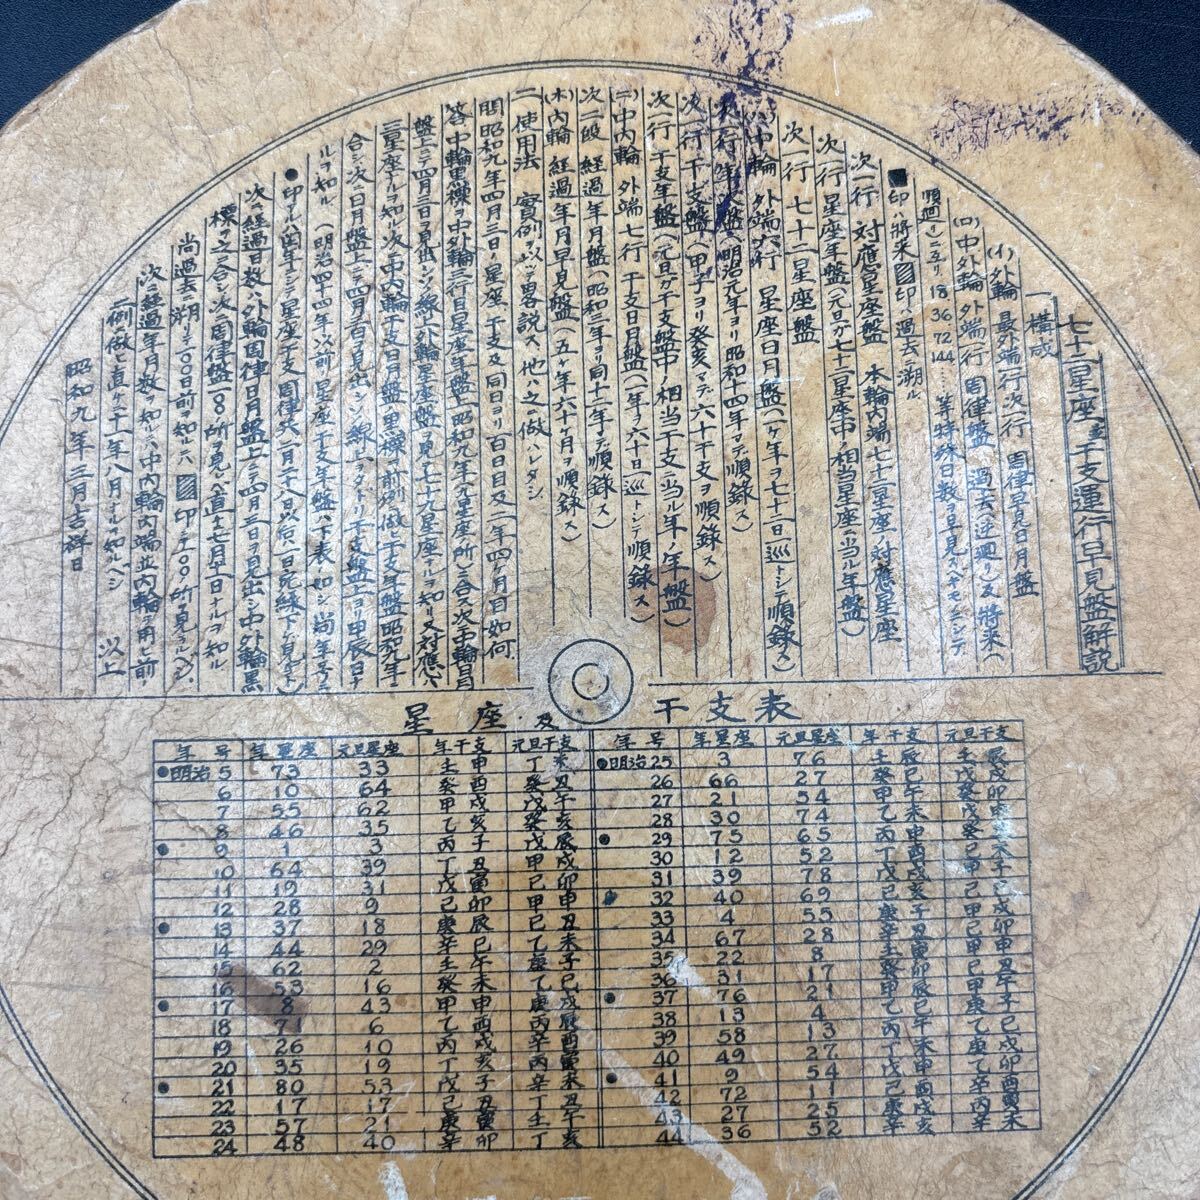 七十二星座並干支運行早見盤解説
構成
(イ)外輪 最外端一行次一行 周律早見日月盤
(ロ)中外輪 外端一行 周律盤(過去(逆廻リ)及将来(
順廻リ)ニヨリ 18 36 72 144 ……等特殊日数ヲ早見スベキモノニシテ
■印ハ将来▨印ハ過去溯ル
次一行 対應星座盤 本輪内端七十二星座ノ対應星座
次一行 星座年盤(元旦ガ七十二星座中ノ相当星座ニ当ル年盤)
次一行 七十二星座盤
(ハ)中輪 外端六行 星座日月盤(一ヶ年ヲ七十二日一巡トシテ順録ス)
次一行 年號盤(明治元年ヨリ昭和十四年マデ順録ス)
次一行 干支盤(甲子ヨリ癸亥マデ六十干支ヲ順録ス)
次一行 干支年盤(元旦ガ干支盤中ノ相当干支ニ当ル年ノ年盤)
(ニ)中内輪 外端七行 干支日月盤(一年ヲ六十日一巡トシテ順録ス)
次二段 経過年月盤(昭和二年ヨリ同十二年マデ順録ス)
(ホ)内輪 経過年月早見盤(五ヶ年六十ヶ月ヲ順録ス)
二、使用法 實例ヲ以テ畧説ス、他ハ之ニ做ハレタシ
問昭和九年四月三日ノ星座、干支及同日ヨリ百日目及二年四ヶ月目如何
答中輪黒標ヲ中外輪三行目星座年盤(昭和九年十九星座所)ニ合ス次中輪日月
盤上ニテ四月三日ヲ見出シソノ線ヘ外輪星座盤ヲ見テ七十九星座ナルヲ知リ又対應ハ
三星座ナルヲ知ル次ニ中内輪干支日月盤ノ黒標ヲ前例ニ做ヒ干支年盤昭和九年ニ
合シ次ニ日月盤上ニ四月三日見出シソノ線上ヲタドリ干支盤上ヨリ甲辰日ナ
ルヲ知ル (明治四十四年以前ノ星座干支年盤ハ下表ノ如シ、尚年号ニ
●印アルハ閏年ニシテ星座干支周律共ニ二月二十八日以后一日宛繰下ゲ見ルコト)
次ニ経過日数ハ外輪周律日月盤上ニテ四月三日ヲ見出シ中外輪黒
標ヲ之ニ合シ次ニ周律盤一〇〇ノ所ヲ見レバ直チニ七月十一日ナルヲ知ル
尚過去ニ溯リテ一〇〇日前ヲ知ルニハ▨印ノ一〇〇ノ所ヲ見ルベシ
次ニ経過年月数ヲ知ルニハ中内輪内端並内輪ヲ用ヒ前ノ
二例ニ做ヒ直チニ十一年八月ナルヲ知ルベシ
以上
昭和九年三月吉祥日
星座及干支表
年号 年星座 元旦星座 年干支 元旦干支 年号 年星座 元旦星座 年干支 元旦干支
●明治5 73 33 壬申 丁未 ●明治25 3 76 壬辰 壬辰
6 10 64 癸酉 癸丑 26 66 27 癸巳 戊戌
7 55 62 甲戌 戊午 27 21 54 甲午 癸卯
8 46 35 乙亥 癸亥 28 30 74 乙未 戊申
●9 1 3 丙子 戊辰 ●29 75 65 丙申 癸丑
10 64 39 丁丑 甲戌 30 12 52 丁酉 己未
11 19 31 戊寅 己卯 31 39 78 戊戌 甲子
12 28 9 己卯 甲申 ●32 40 69 己亥 己巳
●13 37 18 庚辰 己丑 33 4 55 庚子 甲戌
14 44 29 辛巳 乙未 34 67 28 辛丑 己卯
15 62 2 壬午 庚子 35 22 8 壬寅 甲申
16 53 16 癸未 乙巳 36 31 17 癸卯 己丑
●17 8 43 甲申 庚戌 ●37 76 21 甲辰 甲午
18 71 6 乙酉 丙辰 38 13 4 乙巳 庚子
19 26 10 丙戌 辛酉 39 58 13 丙午 乙巳
20 35 19 丁亥 丙寅 40 49 27 丁未 庚戌
●21 80 53 戊子 辛未 ●41 9 54 戊申 乙卯
22 17 17 己丑 丁丑 42 72 11 己酉 辛酉
23 57 21 庚寅 壬午 43 27 25 庚戌 丙寅
24 48 40 辛卯 丁亥 44 36 52 辛亥 辛未